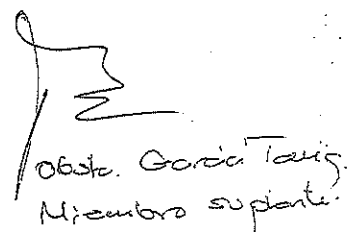 Obsta. García
Miembro suplente.